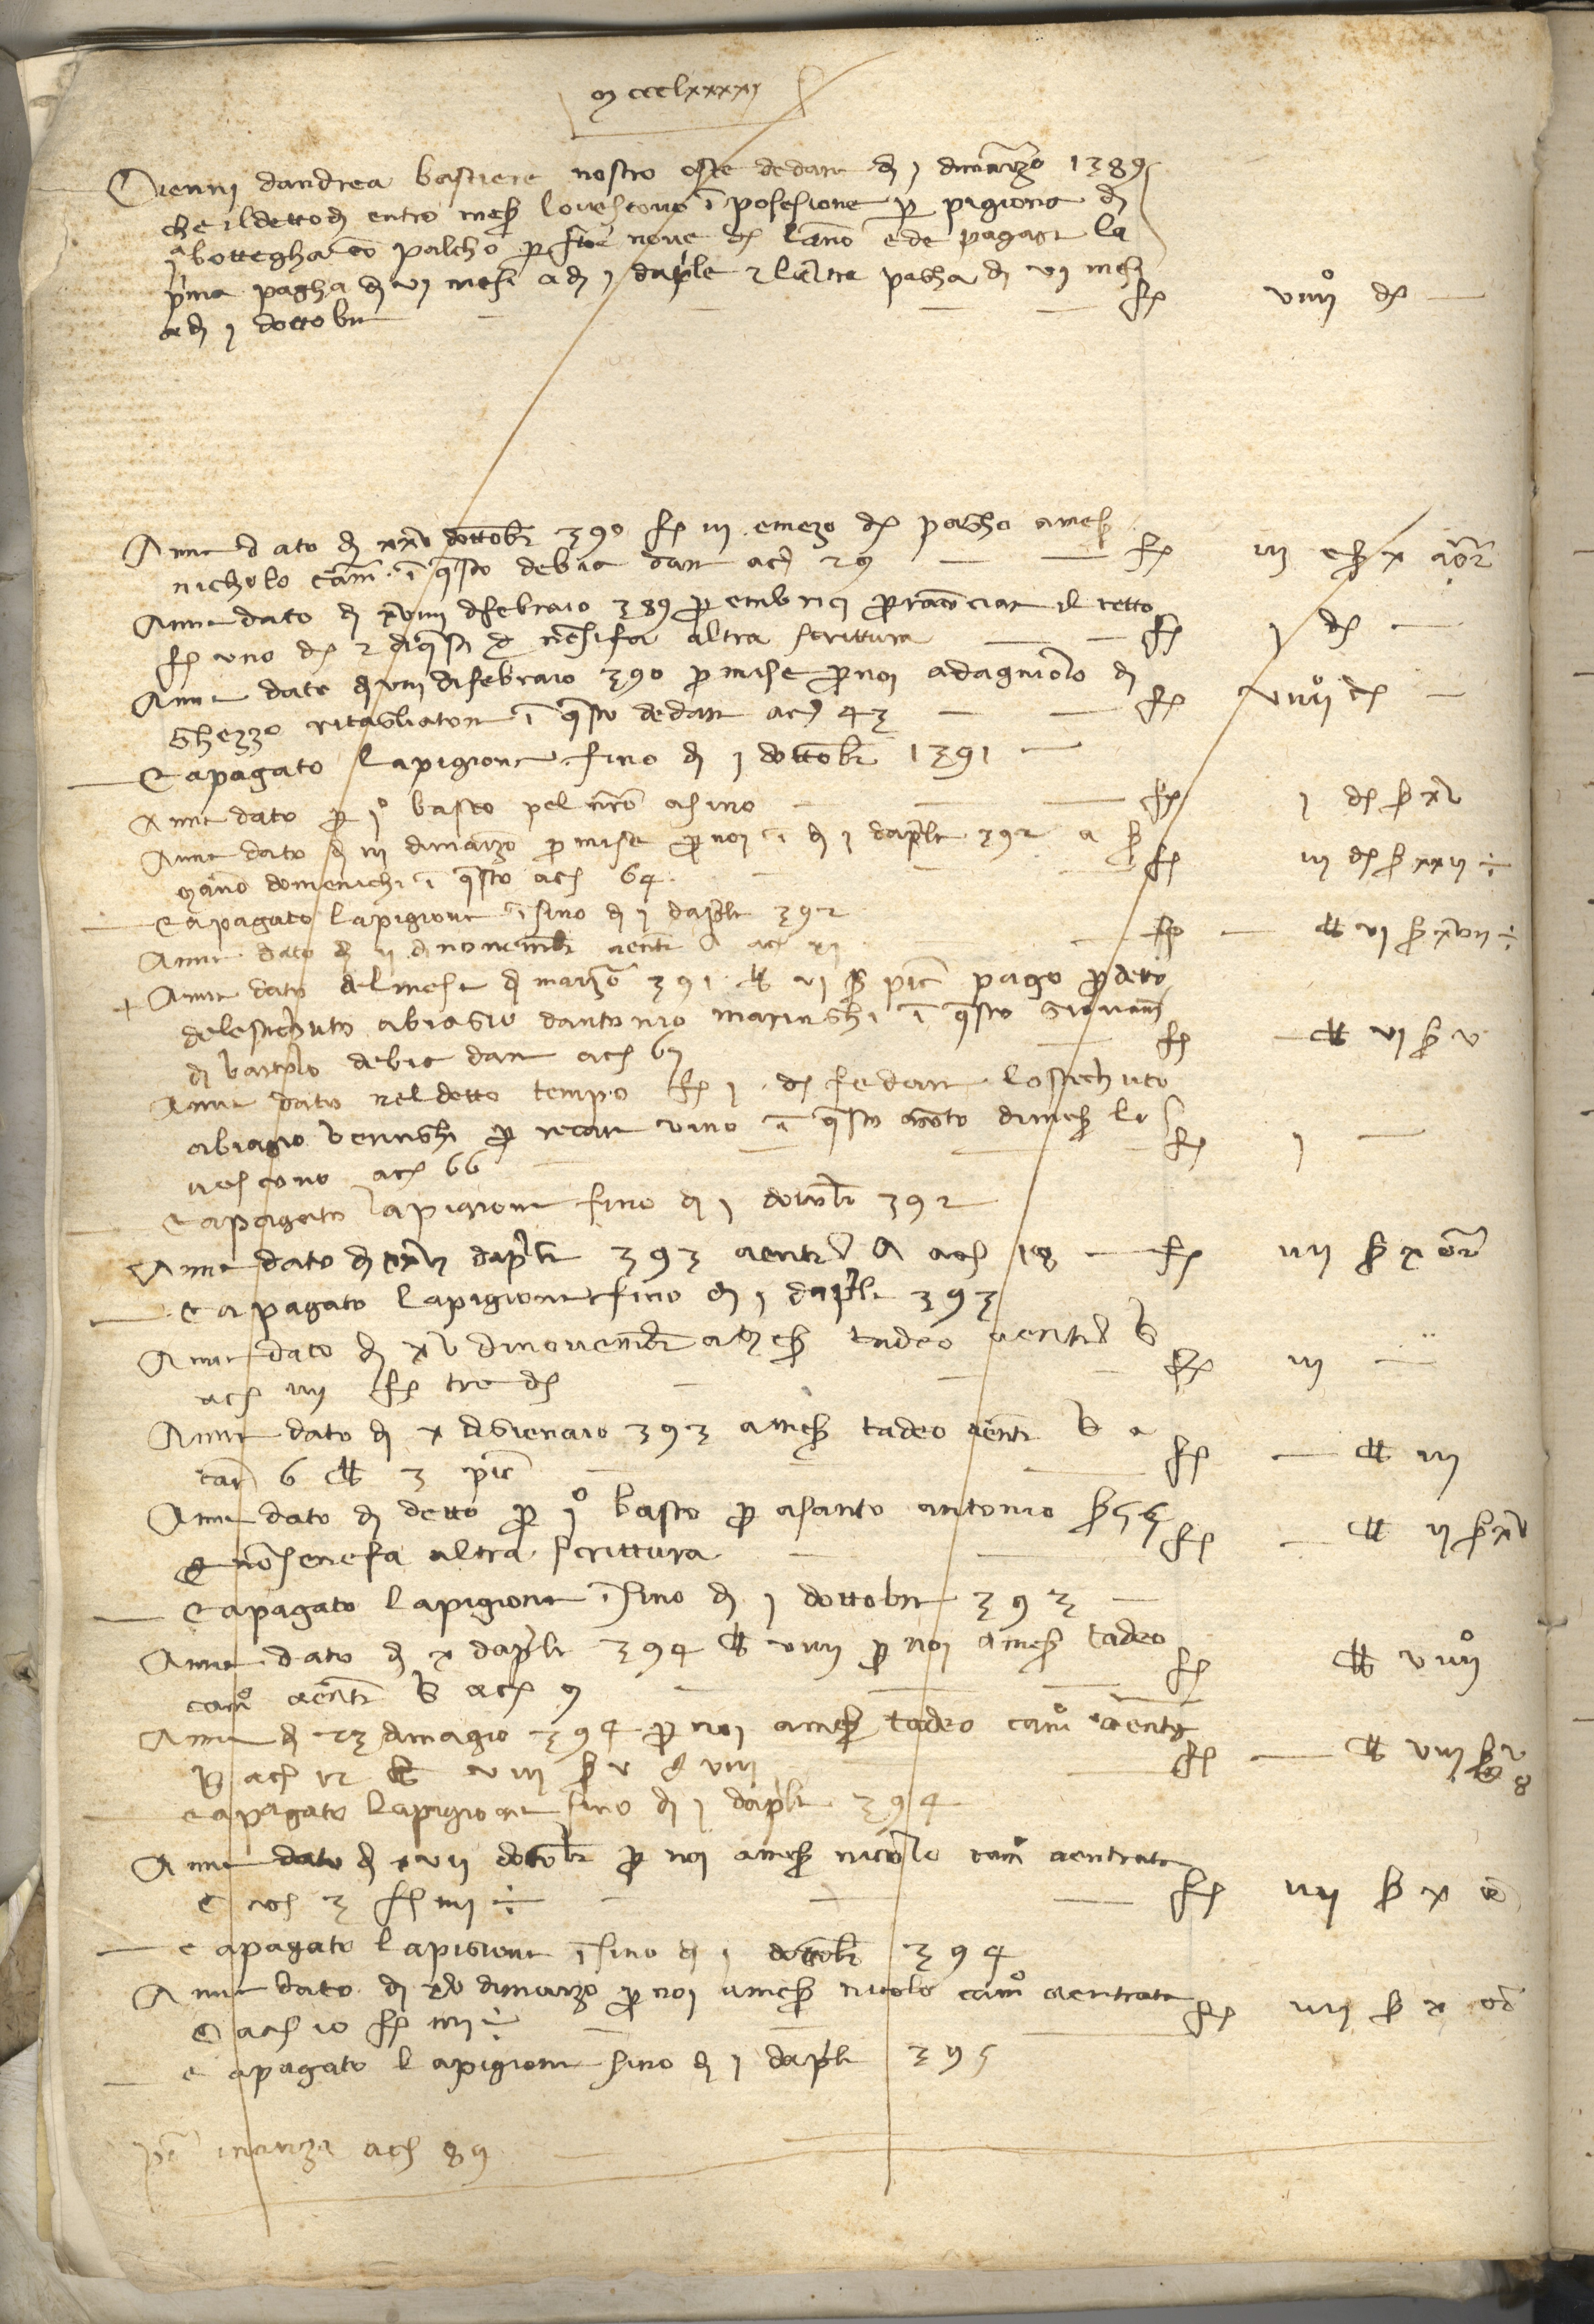 mccclxxxxj
Vienni dandrea bastiere nostro oste dedare dì j dimarzo 1389
che ildetto dì entro meser lo vescovo ī posesione per pigione di
jª bottegha cō palcho per f nove doro lāno e de pagare la
prima pagha di vj mesi a dì j daprile e laltra pagha di vj mesi
a dì j dottobre — — — f viiijº doro —
Anne dato dì xxv dottobre 390 f iiij e mezo doro pagho a meser
nicholo cam. ī questo debia dare ac 29 — — f iij e s x a oro
Anne dato dì xviiij di febraio 389 per embrici per raconciare il tetto
f uno doro e di questi nō si fa altra scrittura — — f j doro —
Anne dato dì viij di febraio 390 per mise per noi ad agniolo di
Ghezzo ritagliatore ī questo de dare ac 43 — — f viiijº doro —
E a pagato la pigione fino dì j dottobre 1391 —
Anne dato per jº basto pel nostro asino — — — f j doro s xv
Anne dato dì iij di marzo per mise per noi ī dì j daprile 392 a s
mano domenichi ī questo ac 64 — — — f iij doro s xxij ÷
E a pagato la pigione īfino dì j daprile 392
Anne dato dì ij di novembre a entr A ac xj — f — ll vj s xvij ÷
+ Anne dato del mese di marzo 391 ll vj s pic pago per detto
delestechuto abiagio dantonio maringhi ī questo giovani
di bartolo debia dare ac 67 — f — ll vj s v
Anne dato nel detto tempo f j doro fe dare lostechuto
abiagio veringhi per recare vino ī questo conto di meser lo
vescovo ac 66 — — — f j —
E a pagato la pigione fino dì j dottobre 392
Anne dato dì xxvj daprile 393 a entr A ac 18 — f iiij s x oro
E a pagato la pigione fino dì j daprile 393
Anne dato dì xv di novembre a meser tadeo a entr B
ac iiij f tre doro — — — f iij —
Anne dato dì x di gienaio 393 a meser tadeo a entr B a
car 6 ll 3 pic — — f — ll iij
Anne dato dì detto per jº basto per a santo antonio s 55
e nō se ne fa altra scrittura — — f — ll ij s xv
E a pagato la pigione īfino dì j dottobre 393 —
Anne dato dì x daprile 394 ll viiij per noi a meser tadeo
camº a entr B ac 9 — — f ll viiijº
Anne dì 23 di magio 394 per noi a meser tadeo camº a entr
B ac 12 ll viij s v d viij — — f — ll viij s v d 8
E a pagato la pigione fino dì j daprile 394
Anne dato dì xvij dottobre per noi a meser nicolo camº a entrata
C ac 3 f iiij ÷ — — — f iiij s x oro
E a pagato la pigione īfino dì j dottobre 394
Anne dato dì xv di marzo per noi a meser nicolo camº a entrata
C ac 10 f iiij ÷ — — — f iiij s x oro
E a pagato la pigione fino dì j daprile 395
posto inanzi ac 89